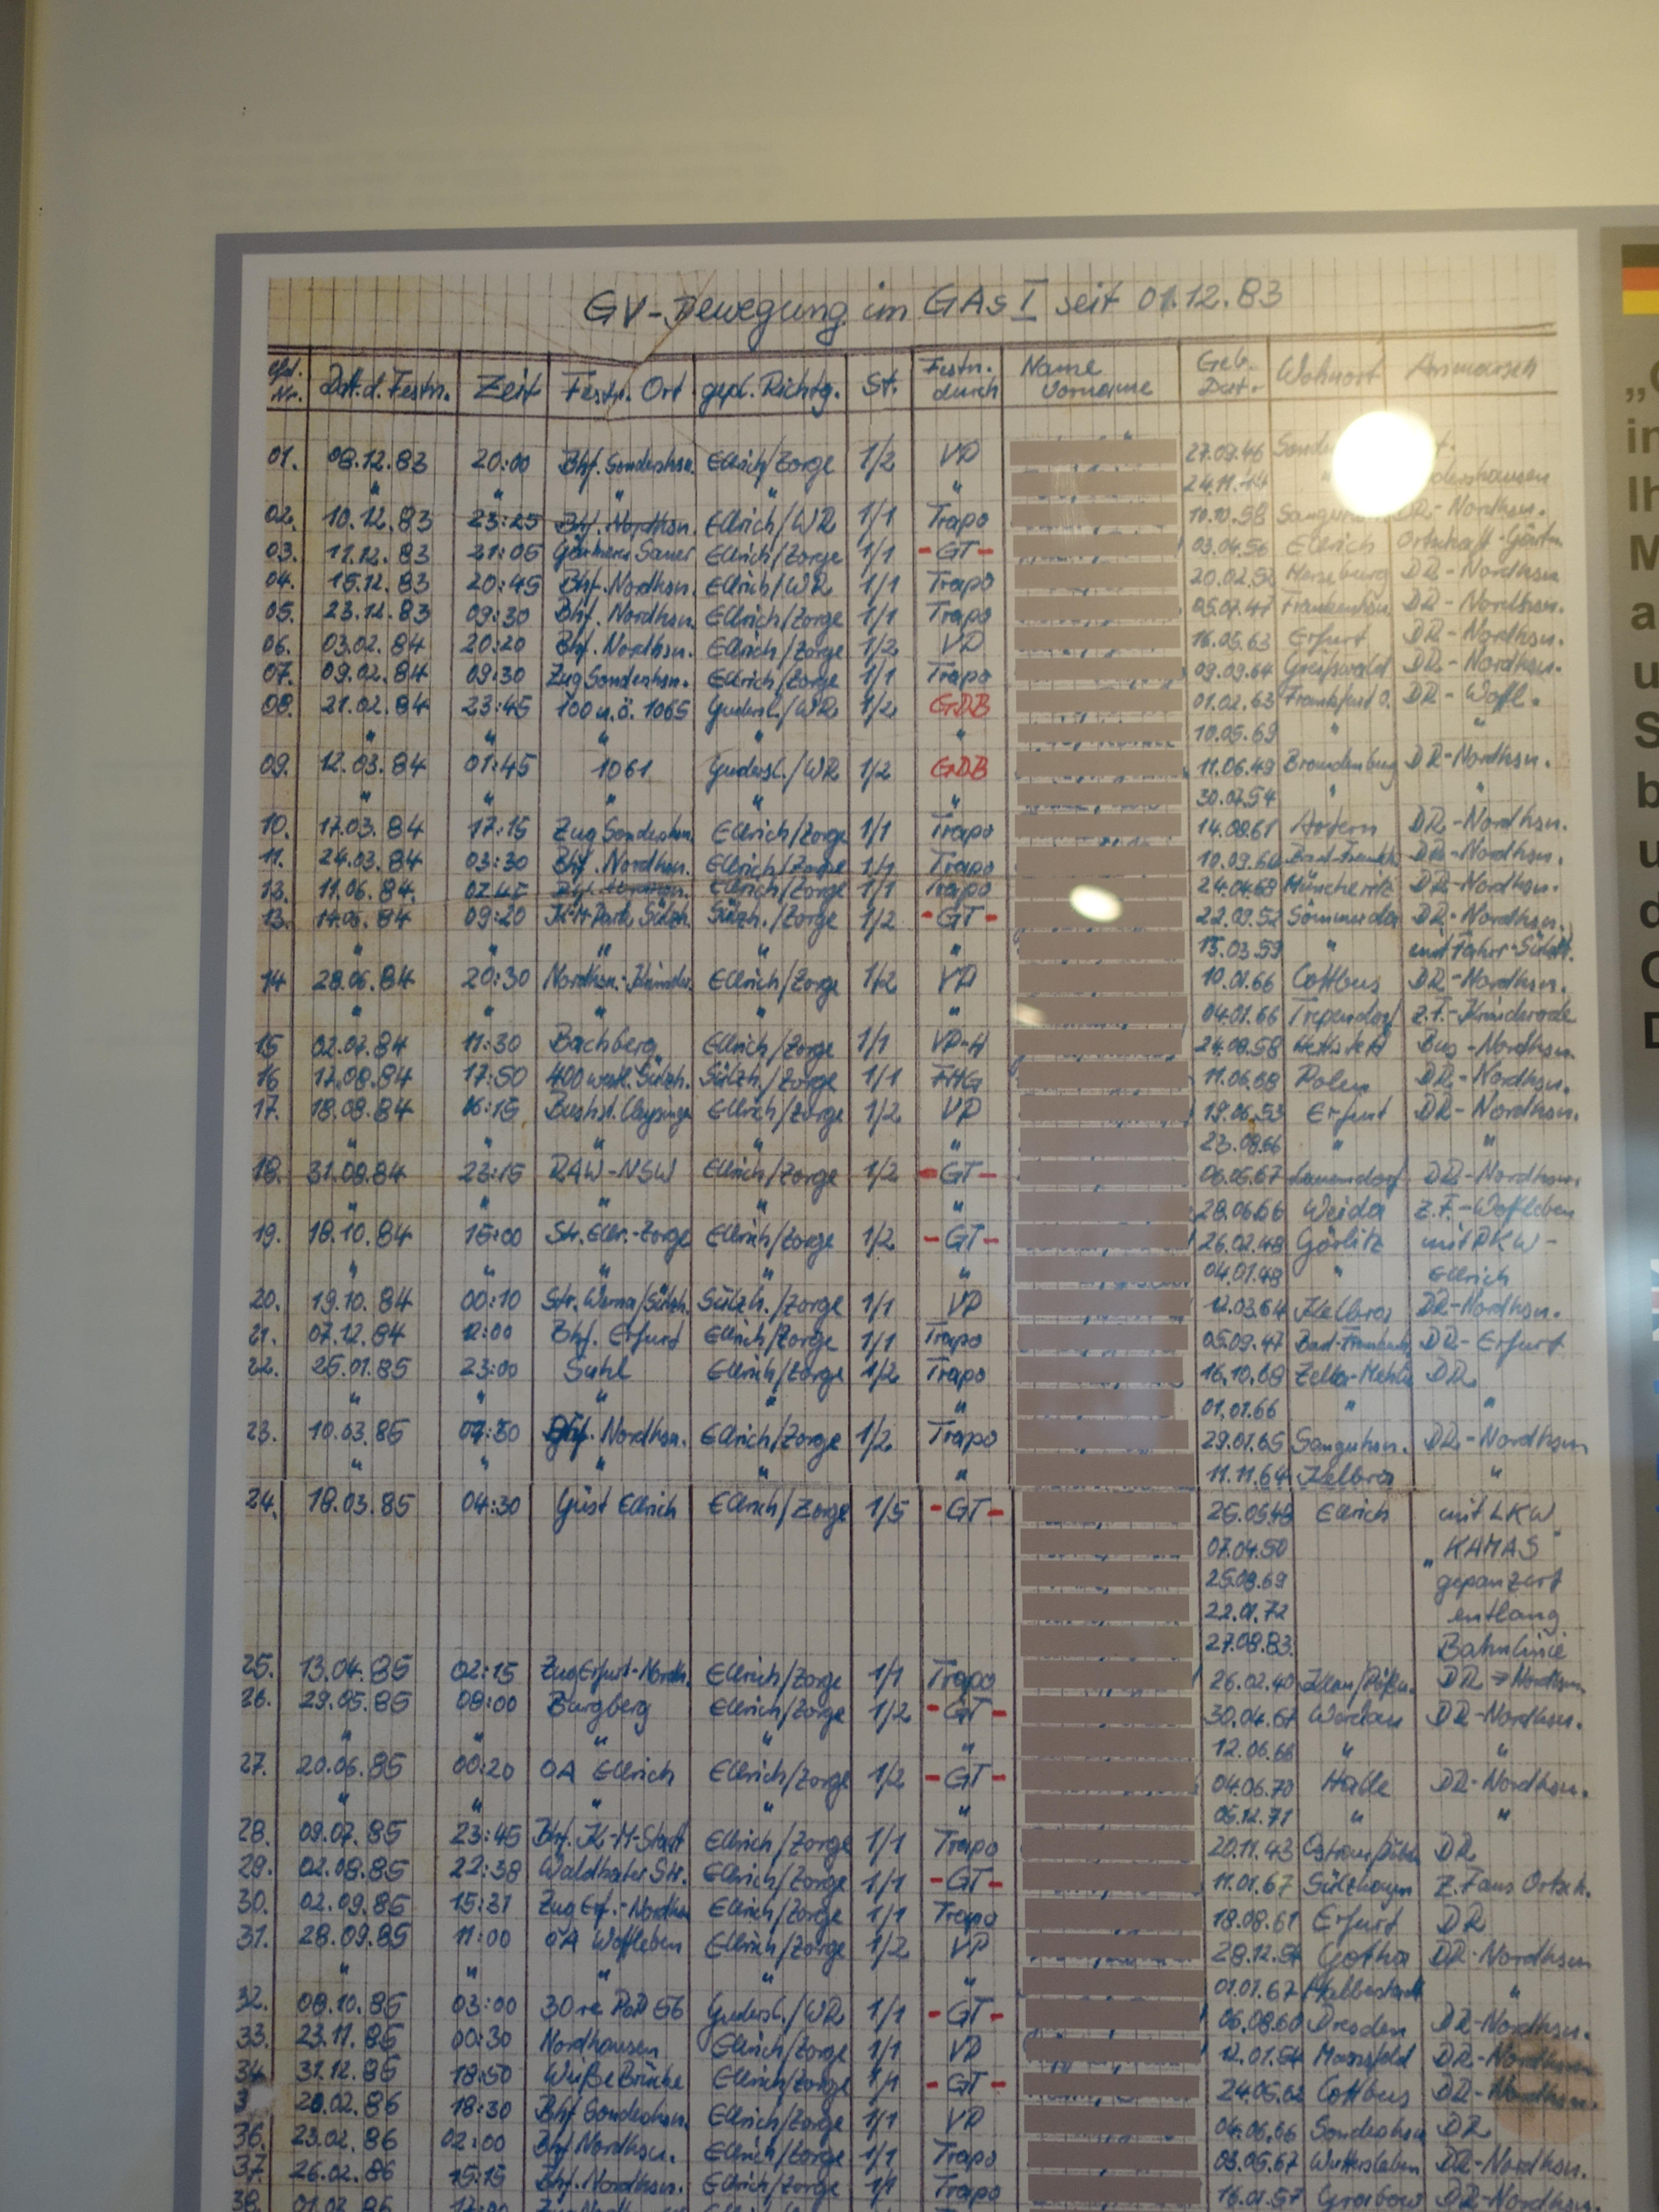 GV-Bewegung im GAs I seit 01.12.83
lfd. Nr. Dat. d. Festn. Zeit Festn. Ort gepl. Richtg. St. Festn. durch Name Vorname Geb. Dat. Wohnort Anmarsch
01. 08.12.83 20:00 Bhf. Sondershsn. Ellrich/Zorge 1/2 VP 27.09.46
" " " " 24.11.44 " dershausen
02. 10.12.83 23:25 Bhf. Nordhsn. Ellrich/WR 1/1 Trapo 10.10.58 DR-Nordhsn.
03. 11.12.83 21:05 Gärtnerei Sauer Ellrich/Zorge 1/1 -GT- 03.04.56 Ellrich Ortschaft-Gärtn.
04. 15.12.83 20:45 Bhf. Nordhsn. Ellrich/WR 1/1 Trapo 20.02.52 Merseburg DR-Nordhsn.
05. 23.12.83 09:30 Bhf. Nordhsn. Ellrich/Zorge 1/1 Trapo 05.07.47 DR-Nordhsn.
06. 03.02.84 20:20 Bhf. Nordhsn. Ellrich/Zorge 1/2 VP 16.05.63 Erfurt DR-Nordhsn.
07. 09.02.84 09:30 Zug Sondershsn. Ellrich/Zorge 1/1 Trapo 09.09.64 Greifswald DR-Nordhsn.
08. 21.02.84 23:45 100 m.ö. 1065 Gudersl./WR 1/2 GDB 01.02.63 Frankfurt O. DR-Woffl.
" " " " " 10.05.69 " "
09. 12.03.84 01:45 1061 Gudersl./WR 1/2 GDB 11.06.49 Brandenburg DR-Nordhsn.
" " " " " 30.07.54 " "
10. 17.03.84 17:15 Zug Sondershsn. Ellrich/Zorge 1/1 Trapo 14.08.61 Artern DR-Nordhsn.
11. 24.03.84 03:30 Bhf. Nordhsn. Ellrich/Zorge 1/1 Trapo DR-Nordhsn.
12. 11.06.84. Ellrich/Zorge 1/1 Trapo DR-Nordhsn.
13. 14.06.84 09:20 Sülzh./Zorge 1/2 -GT- 22.09.52 Sömmerda DR-Nordhsn.
" " " " 15.03.59 "
14 28.06.84 20:30 Ellrich/Zorge 1/2 VP 10.01.66 Cottbus DR-Nordhsn.
" " " " " 04.01.66 Trependorf z.F.-Krimderode
15 02.07.84 11:30 Bachberg Ellrich/Zorge 1/1 VP-H 24.08.58 Hettstedt Bus-Nordhsn.
16 17.08.84 17:50 400 westl. Sülzh. Sülzh./Zorge 1/1 FHG 11.06.68 Polen DR-Nordhsn.
17. 18.08.84 16:15 Ellrich/Zorge 1/2 VP 19.06.53 Erfurt DR-Nordhsn.
" " " " " 23.08.66 " "
18. 31.08.84 23:15 RAW-NSW Ellrich/Zorge 1/2 -GT- 06.05.67 DR-Nordhsn.
" " " " " 28.06.66 Weida z.F.-Woffleben
19. 18.10.84 15:00 Str. Ellr.-Zorge Ellrich/Zorge 1/2 -GT- 26.02.48 Görlitz mit PKW-
" " " " " 04.01.48 " Ellrich
20. 19.10.84 00:10 Str. Werna/Sülzh. Sülzh./Zorge 1/1 VP 12.03.64 Kelbra DR-Nordhsn.
21. 07.12.84 12:00 Bhf. Erfurt Ellrich/Zorge 1/1 Trapo 05.09.47 DR-Erfurt
22. 25.01.85 23:00 Suhl Ellrich/Zorge 1/2 Trapo 16.10.68 Zella-Mehlis DR
" " " " " 01.01.66 " "
23. 10.03.85 Bhf. Nordhsn. Ellrich/Zorge 1/2 Trapo 29.01.65 Sangerhsn. DR-Nordhsn
" " " " " 11.11.64 Kelbra "
24. 18.03.85 04:30 Güst Ellrich Ellrich/Zorge 1/5 -GT- Ellrich mit LKW
07.04.50 "KAMAS"
25.08.69 gepanzert
22.01.72 entlang
27.08.83. Bahnlinie
25. 13.04.85 02:15 Zug Erfurt-Nordh. Ellrich/Zorge 1/1 Trapo 26.02.40 DR → Nordhsn
26. 29.05.85 08:00 Burgberg Ellrich/Zorge 1/2 -GT- 30.04.67 Werdau DR-Nordhsn.
" " " 12.06.66 " "
27. 20.06.85 00:20 OA Ellrich Ellrich/Zorge 1/2 -GT- 04.06.70 Halle DR-Nordhsn.
" " " " " 05.12.71 " "
28. 09.07.85 23:45 Bhf. K-M-Stadt Ellrich/Zorge 1/1 Trapo 20.11.43 DR
29. 02.08.85 22:38 Ellrich/Zorge 1/1 -GT- 11.01.67 Sülzhayn z.F aus Ortsch.
30. 02.09.85 15:31 Zug Erf.-Nordhsn Ellrich/Zorge 1/1 Trapo 18.08.61 Erfurt DR
31. 28.09.85 11:00 OA Woffleben Ellrich/Zorge 1/2 VP Gotha DR-Nordhsn
" " " " " 01.01.67 Halberstadt "
32. 08.10.85 03:00 Gudersl./WR 1/1 -GT- 06.08.60 Dresden DR-Nordhsn.
33. 23.11.85 00:30 Nordhausen Ellrich/Zorge 1/1 VP Mansfeld DR-Nordhsn
34. 31.12.85 18:50 Weiße Brücke Ellrich/Zorge 1/1 -GT- Cottbus DR-Nordhsn.
3 20.02.86 18:30 Bhf. Sondershsn. Ellrich/Zorge 1/1 VP 04.06.66 Sondershsn DR
36. 23.02.86 02:00 Bhf Nordhsn. Ellrich/Zorge 1/1 Trapo 03.05.67 DR-Nordhsn.
37. 26.02.86 15:15 Bhf. Nordhsn. Ellrich/Zorge 1/1 Trapo 16.01.57 Grabow DR-Nordhsn.
38.